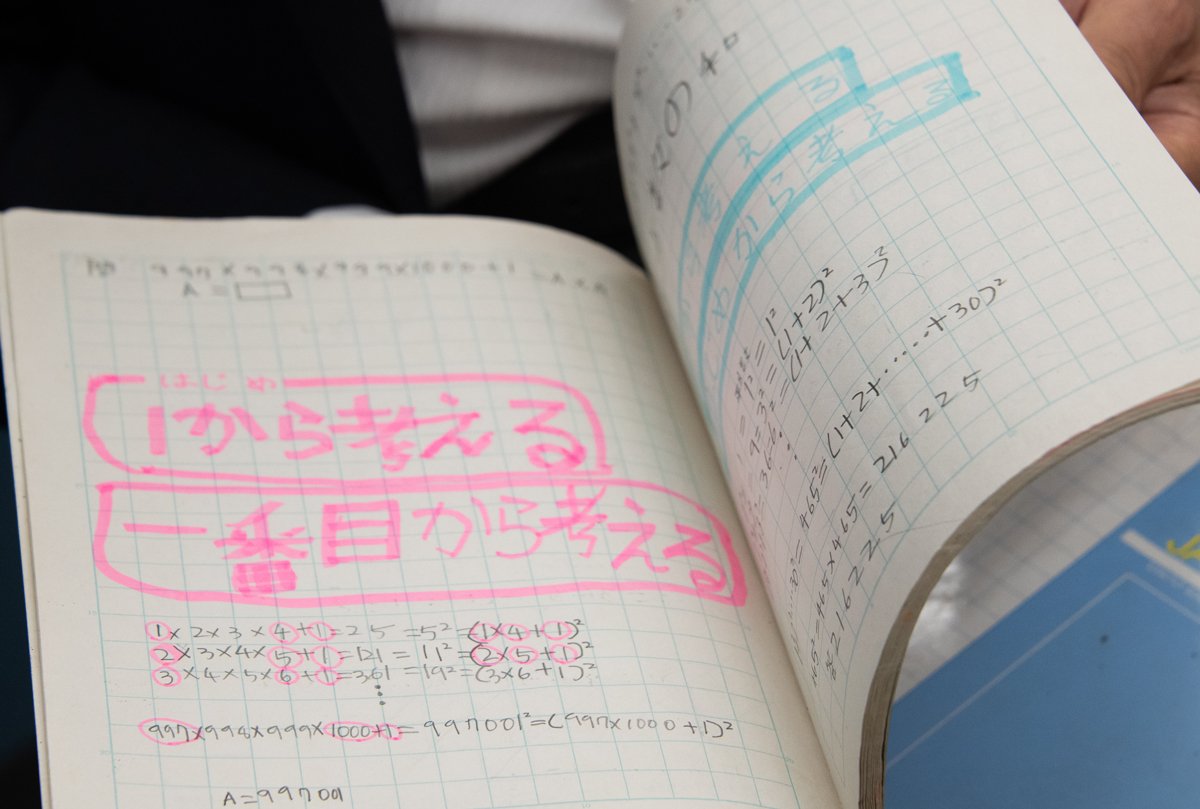 997×998×999×1000+1=A×A
A=□
はじめ
1から考える
一番目から考える
1×2×3×4+1=25=5²=(1×4+1)²
2×3×4×5+1=121=11²=(2×5+1)²
3×4×5×6+1=361=19²=(3×6+1)²
⋮
997×998×999×1000+1=997001²=(997×1000+1)²
A=997001
考える
から考える
=1²=1²
9=3²=(1+2)²
36=6²=(1+2+3)²
⋮
=465²=(1+2+……+30)²
465²=465×465=216225
216225